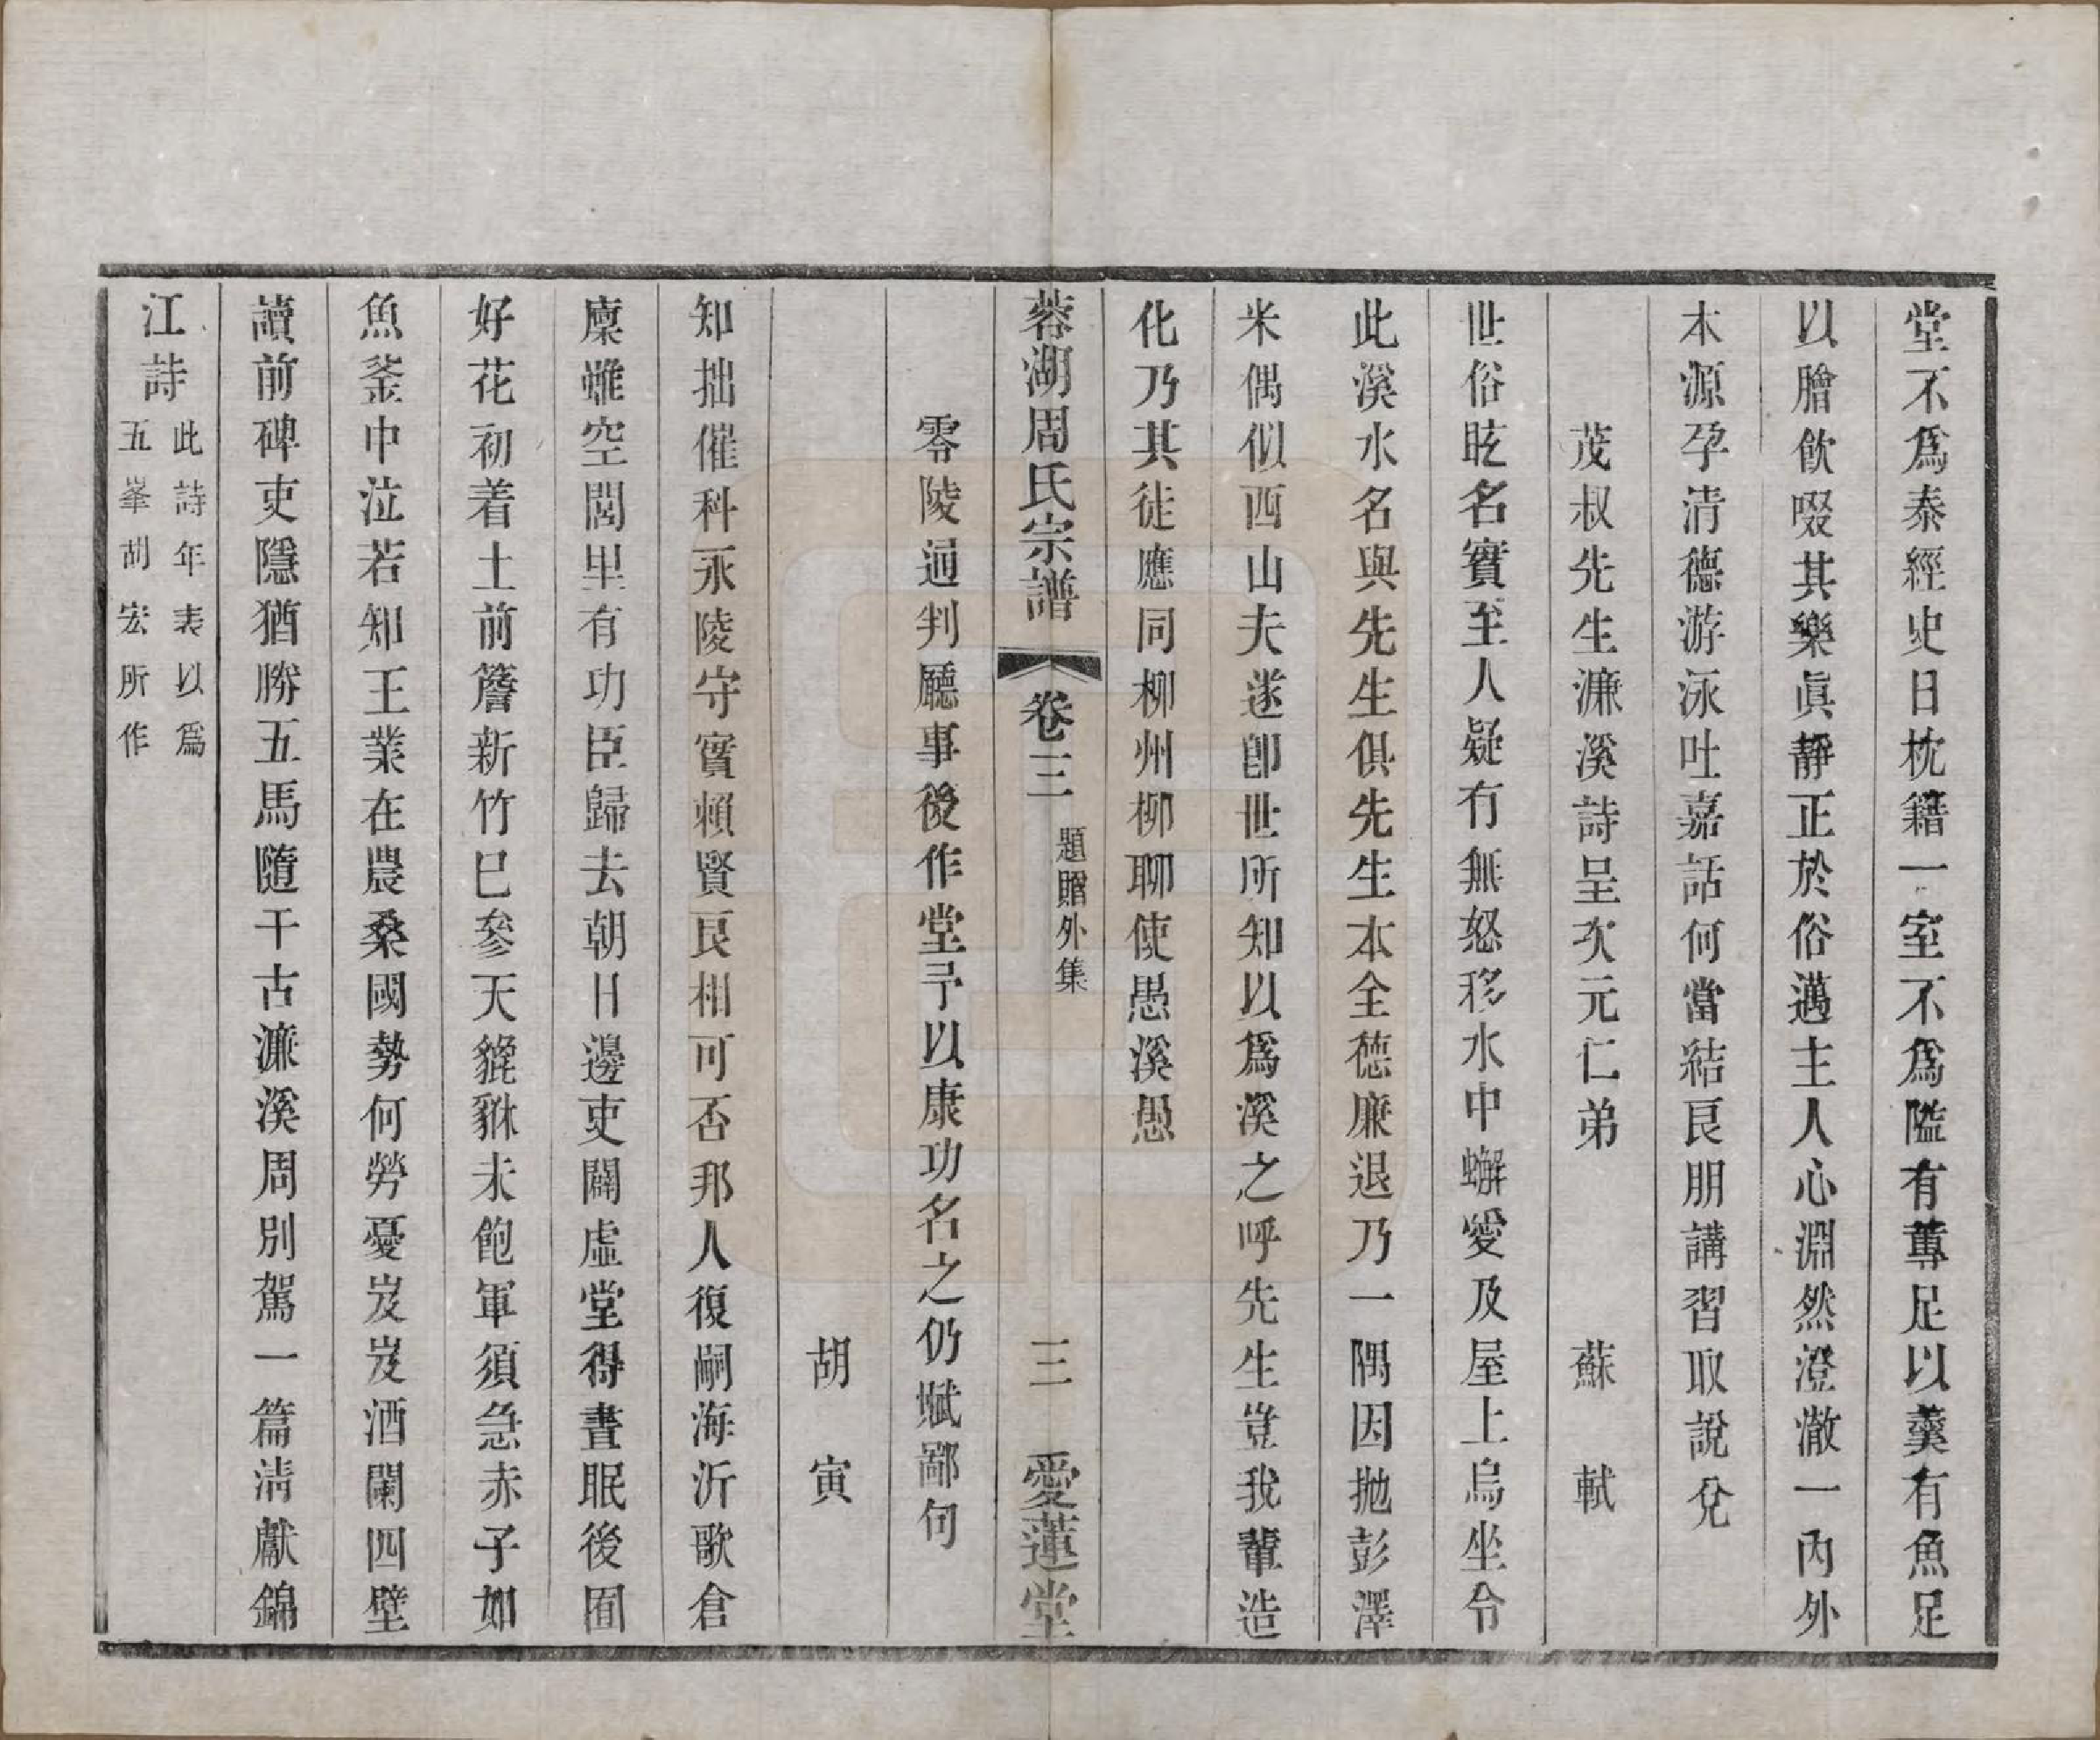 堂不爲泰經史日枕籍一室不爲隘有蓴足以羹有魚足
以膾飮啜其樂眞靜正於俗邁主人心淵然澄澈一內外
本源孕清德游泳吐嘉話何當結良朋講習取說兌
茂叔先生濂溪詩呈次元仁弟　蘇　軾
世俗眩名實至人疑有無怒移水中蠏愛及屋上烏坐令
此溪水名與先生俱先生本全德廉退乃一隅因抛彭澤
米偶似西山夫遂卽世所知以爲溪之呼先生豈我輩造
化乃其徒應同柳州柳聊使愚溪愚
蓉湖周氏宗譜　卷三　題贈外集　三　愛蓮堂
零陵通判廳事後作堂予以康功名之仍賦鄙句
胡　寅
知拙催科永陵守實賴賢良相可否邦人復嗣海沂歌倉
廩雖空閭里有功臣歸去朝日邊吏闢虛堂得晝眠後囿
好花初着土前簷新竹已參天貔貅未飽軍須急赤子如
魚釜中泣若知王業在農桑國勢何勞憂岌岌酒闌四壁
讀前碑吏隱猶勝五馬隨千古濂溪周別駕一篇淸獻錦
江詩　此詩年表以爲
五峯胡宏所作